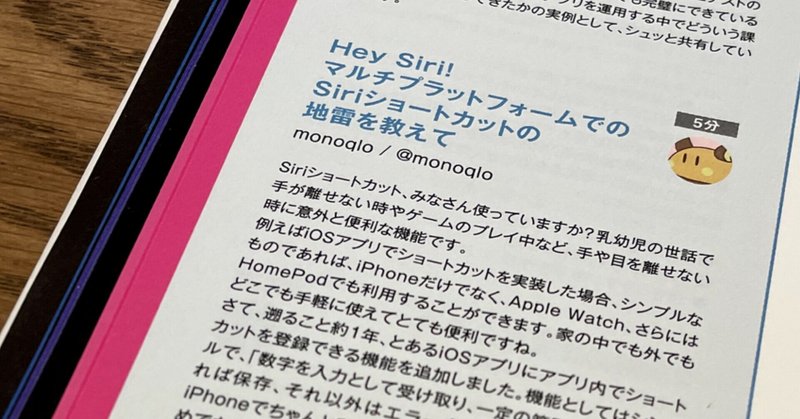 も完璧にできている
プリを運用する中でどういう課
できたかの実例として、シュッと共有してい
す。
Hey Siri!
マルチプラットフォームでの
Siriショートカットの
地雷を教えて
5分
monoqlo / @monoqlo
Siriショートカット、みなさん使っていますか？乳幼児の世話で
手が離せない時やゲームのプレイ中など、手や目を離せない
時に意外と便利な機能です。
例えばiOSアプリでショートカットを実装した場合、シンプルな
ものであれば、iPhoneだけでなく、Apple Watch、さらには
HomePodでも利用することができます。家の中でも外でも
どこでも手軽に使えてとても便利ですね。
さて、遡ること約1年、とあるiOSアプリにアプリ内でショート
カットを登録できる機能を追加しました。機能としてはシ
ルで、「数字を入力として受け取り、一定の
れば保存、それ以外はエラー
iPhoneでちゃんと